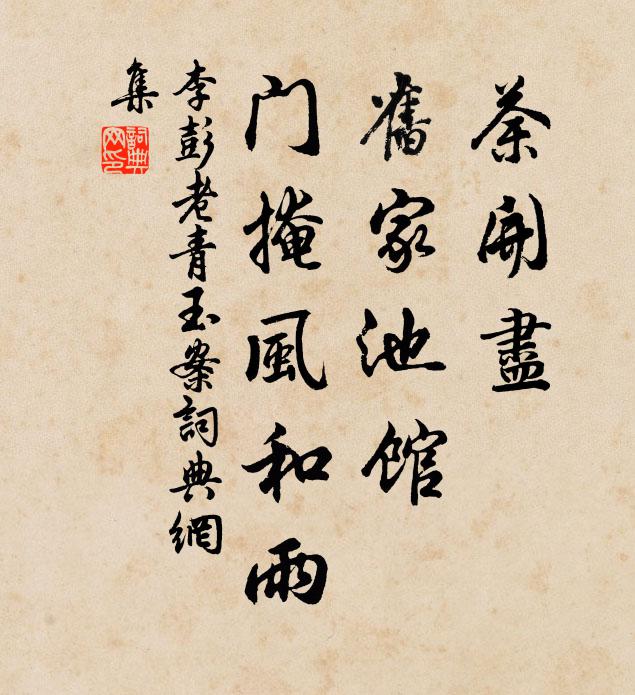 荼開盡
舊家池館
门掩風和雨
李彭老青玉案詞典網
集
詞典
网印